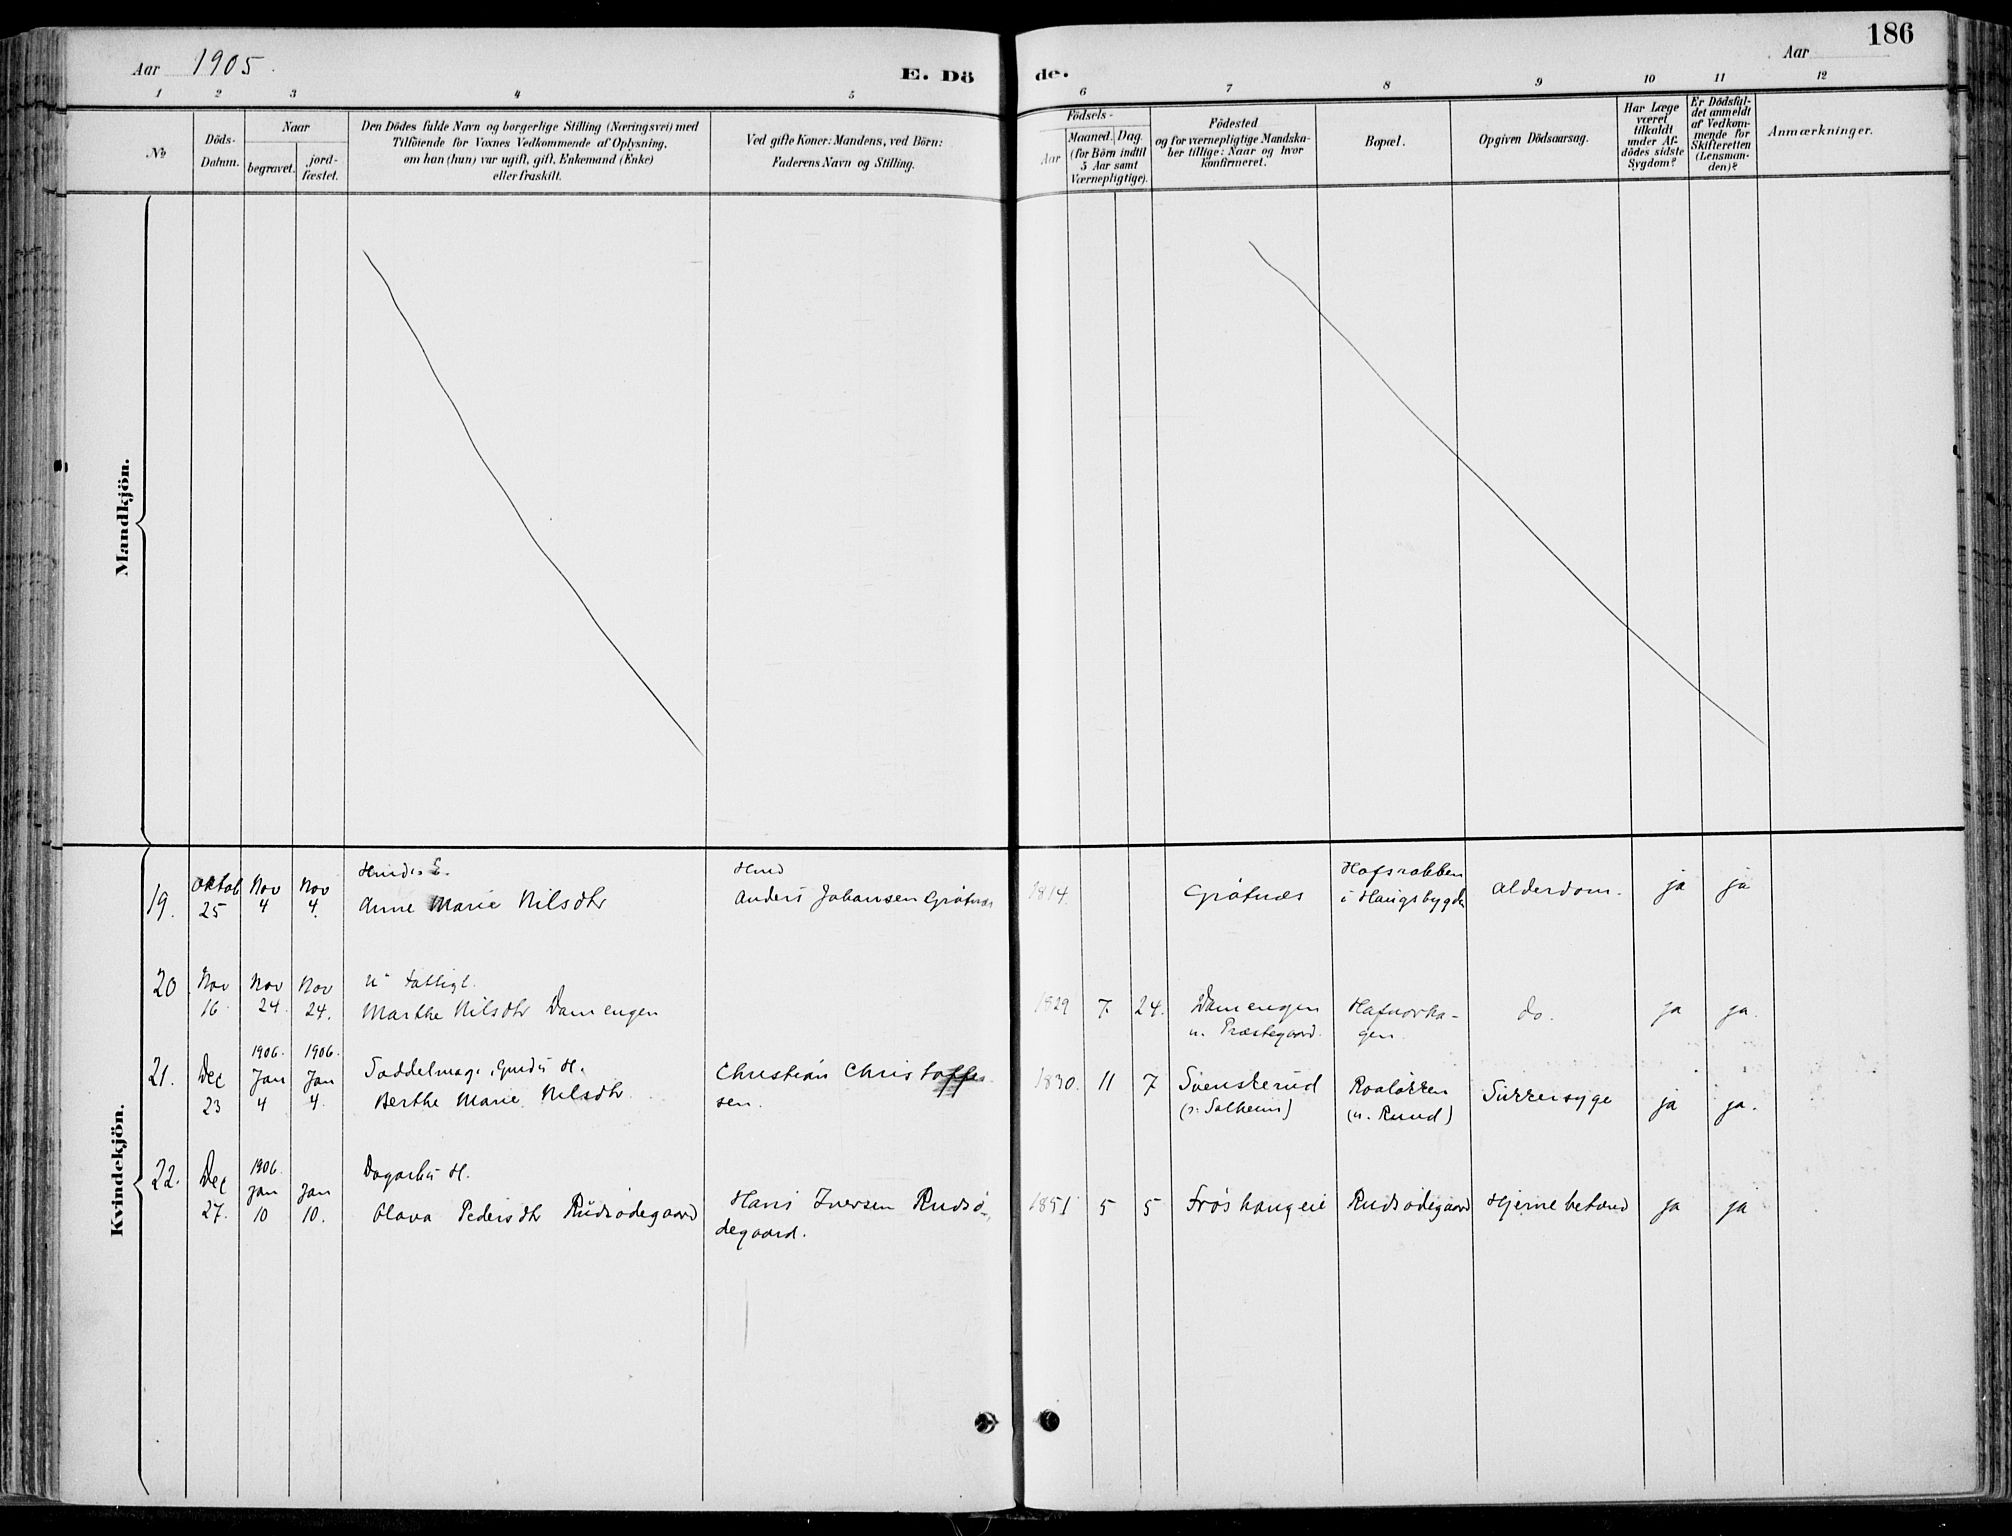 Aar 1905.
E. Dö
de.
Aar
186
1 2 3 4 5
6 7 8 9 10 11 12
№
Döds-
Datum.
Naar
begravet.
jord-
fæstet.
Den Dödes fulde Navn og borgerlige Stilling (Næringsvei) med
Tilföiende for Voxnes Vedkommende af Oplysning,
om han (hun) var ugift, gift, Enkemand (Enke)
eller fraskilt.
Ved gifte Koner: Mandens, ved Börn:
Faderens Navn og Stilling.
Födsels-
Aar
Maaned.
Dag.
(for Börn indtil
5 Aar samt
Værnepligtige).
Födested
og for værnepligtige Mandska-
ber tillige: Naar og hvor
konfirmeret.
Bopæl.
Opgiven Dödsaarsag.
Har Læge
været
tilkaldt
under Af-
dödes sidste
Sygdom?
Er Dödsfal-
det anmeldt
af Vedkom-
mende for
Skifteretten
(Lensman-
den)?
Anmærkninger.
Mandkjön.
Kvindekjön.
19.
Oktob
25
Nov
4
Nov
4.
Anne Marie Nilsdtr
Hmd
Anders Johansen Grøtnæs
1814.
Grøtnæs
Hafsrabben
i Haugsbygda
Alderdom.
ja
ja
20
Nov
16.
Nov
24.
Nov
24.
Fattigl.
Marthe Nilsdtr Damengen
1829
7
24.
Damengen
u. Præstegaard.
Hafnorha-
gen.
do.
ja
ja.
21.
Dec
23
1906.
Jan
4
1906.
Jan
4.
Saddelmag.
Berthe Marie Nilsdtr
Christian Christoffer
sen.
1830.
11
7
Svenskerud
(o: Solheim)
Roaløkken
(u. Ruud)
Sukkersyge
ja
ja.
22.
Dec
27.
1906.
Jan
10
Jan
10.
Olava Pedersdtr Rudsødegaard
Hans Iversen Rudsø-
degaard.
1851
5
5
Frøshaugeie
Rudsødegaard
Hjernebetænd
ja
ja